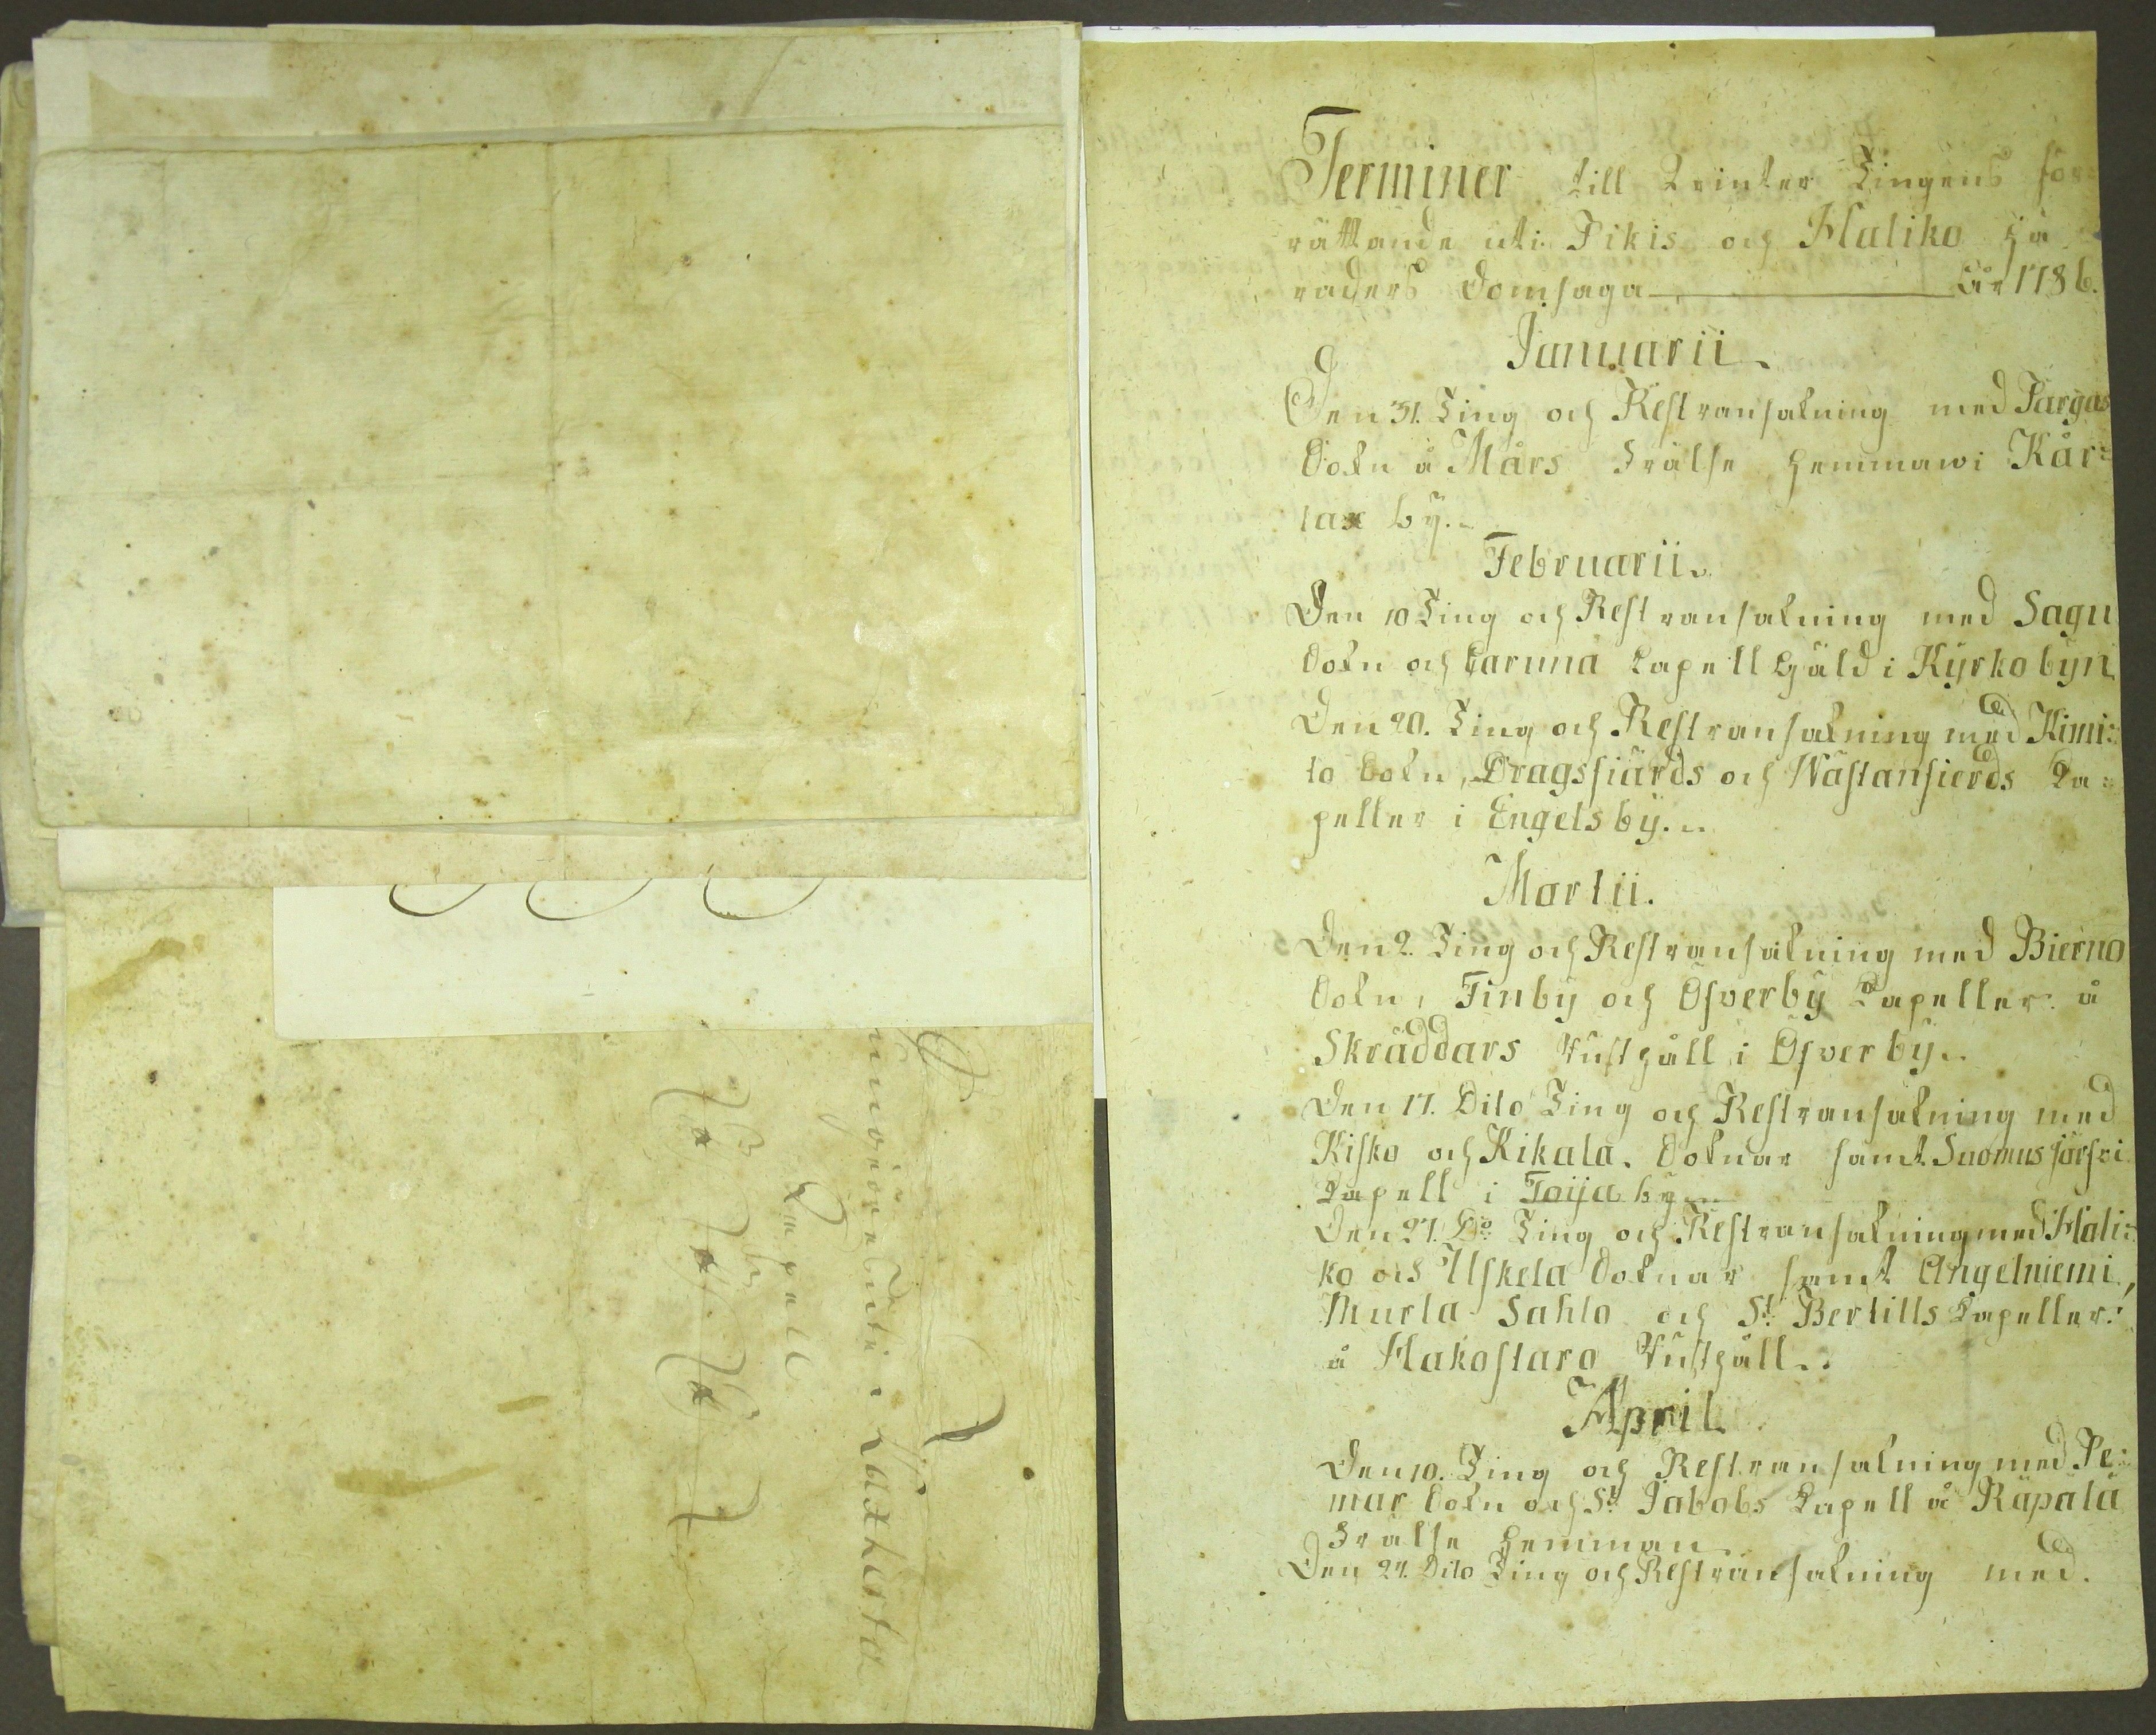 Terminer till Winter Tingens för
rättande uti Pikis och Haliko hä
raders Domsaga år 1786.
Januarii.
Den 31. Ting och Restransakning med Pargas
Sokn å Mårs Frälse hemman i Kår=
lax by.
Februarii.
Den 10 Ting och Restransakning med Sagu
Sokn och Caruna Capell Gäld i Kyrkobyn
Den 20. Ting och Restransakning med Kimi=
to Sokn, Dragsfiärds och Wästanfierds Ca=
peller i Engelsby.
Martii.
Den 2. Ting och Restransakning med Bierno
Sokn, Finby och Ofverby Capeller å
Skräddars Rusthåll i Ofverby.
Den 17. Dito Ting och Restransakning med
Kisko och Kikala. Soknar samt Suomusjärfvi
Capell i Toija by
Den 27. Do Ting och Restransakning med Hali=
ko och Uskela Soknar samt Angelniemi,
Murla Sahlo och St Bertills Capeller:
å Hakostaro Rusthåll.
April
Den 10. Ting och Restransakning med Pe=
mar Sokn och St Jabobs Capell å Räpälä
Frälse hemman
Den 24. Dito Ting och Restransakning med.
Capell